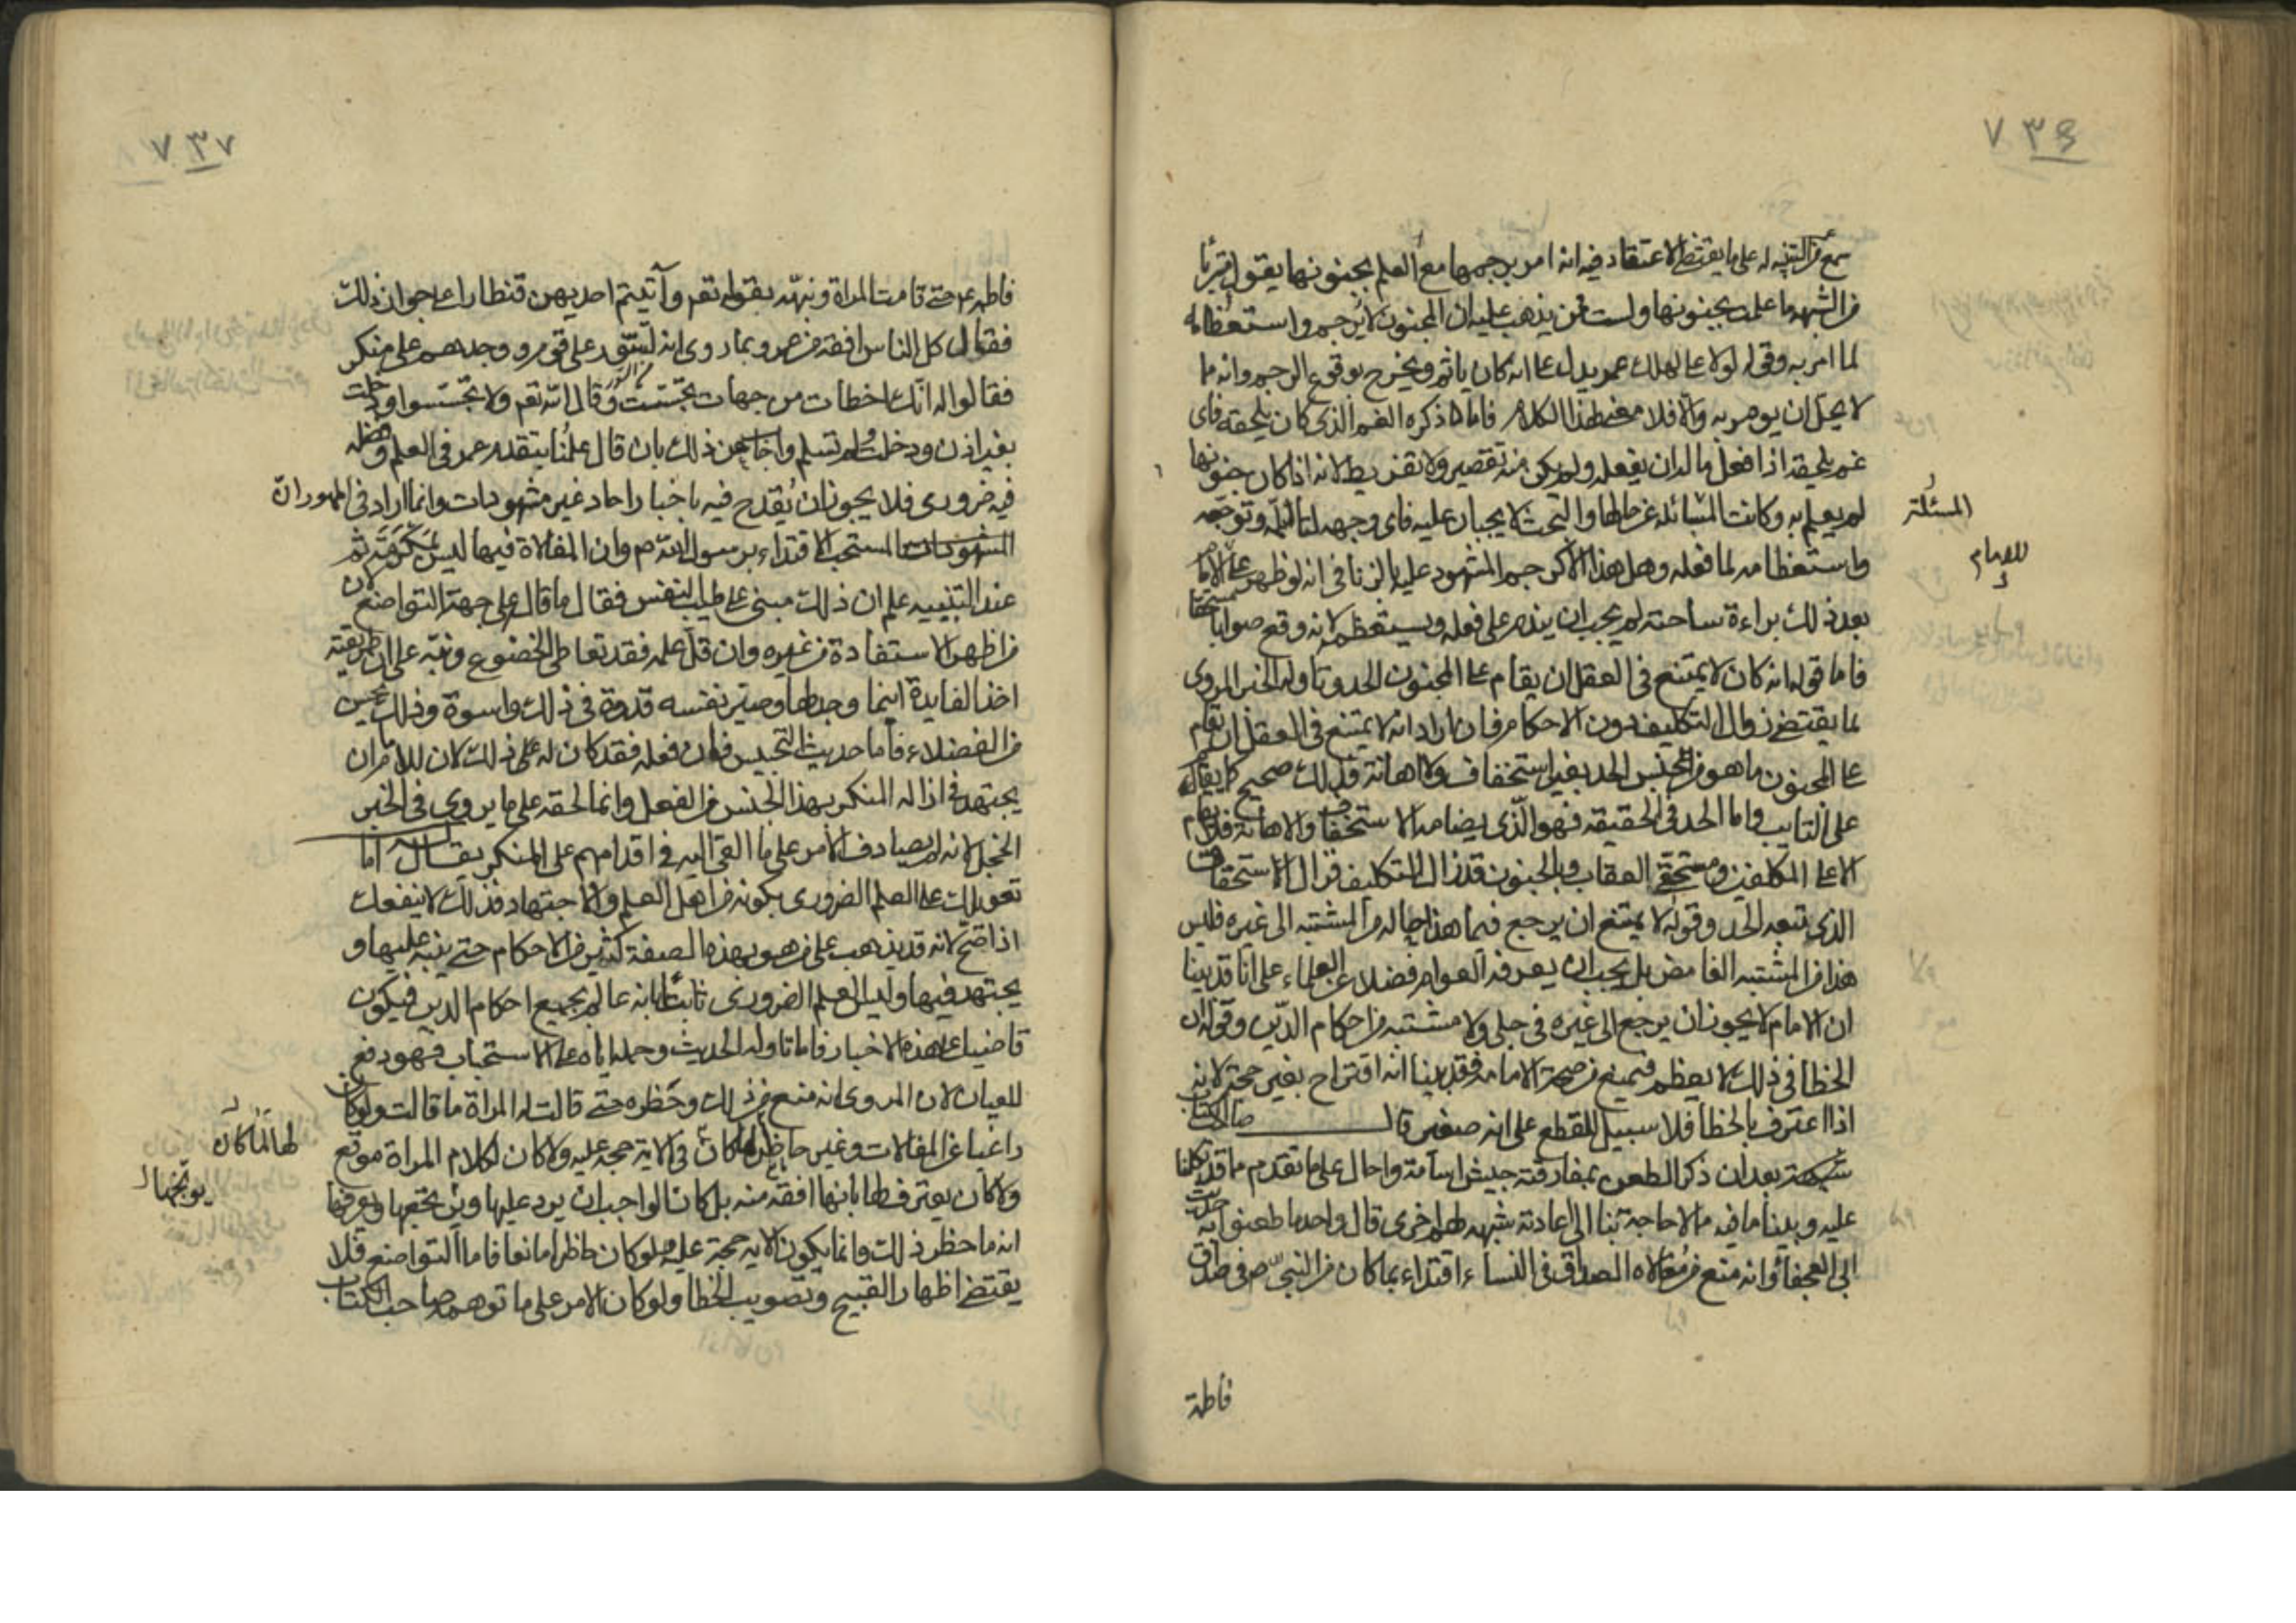 ٧٣٦
سمع من التنبيه له على ما يقتضي الاعتقاد فيه انه امر برجمها مع العلم بجنونها يقول متبرئا
من الشبهة ما علمت بجنونها ولست ممن يذهب عليه ان المجنون لا يرجم واستعظامه
لما امر به وقوله لولا على لهلك عمر يدل على انه كان ياثم ويحرج بوقوع الرجم وانه مما
لا يحل ان يومر به والا فلا معنى لهذا الكلام فاما ذكره الغم الذى كان يلحقه فاى
غم يلحقه اذا فعل ماله ان يفعله ولم يكن منه تقصير ولا تفريط لانه اذا كان جنونها
لم يعلم به وكانت المسائلة عن حالها والبحث لا يجبان عليه فاى وجه لتالمه وتوجعه
المسئلة
واستعظامه لما فعله وهل هذا الا كرجم المشهود عليه بالزنا فى انه لو ظهر للامام
للامام
بعد ذلك براءة ساحته لم يجب ان يندم على فعله ويستعظمه لانه وقع صوابا مستحقا
فاما قوله انه كان لا يمتنع فى العقل ان يقام على المجنون الحد وتاوله الخبر المروى
بما يقتضى زوال التكليف دون الاحكام فان اراد انه لا يمتنع فى العقل ان يقام
على المجنون ما هو من جنس الحد بغير استخفاف ولا اهانة فذلك صحيح كما يقام
على التايب واما الحد فى الحقيقه فهو الذى يضامه الاستخفاف والاهانة فلا يقام
الا على المكلفين ومستحقى العقاب وبالجنون قد زال التكليف فزال الاستحقاق
الذى تبعه الحد وقوله لا يمتنع ان يرجع فيما هذا حاله من المشتبه الى غيره فليس
هذا من المشتبه الغامض بل يجب ان يعرفه العوام فضلا عن العلماء على انا قد بينا
ان الامام لا يجوز ان يرجع الى غيره فى جلى ولا مشتبه من احكام الدين وقوله ان
الخطا فى ذلك لا يعظم فيمنع من صحة الامامه فقد بينا انه اقتراح بغير حجة لانه
اذا اعترف بالخطا فلا سبيل للقطع على انه صغير قال صاحب الكتاب
شبهة بعد ان ذكر الطعن بمفارقته جيش اسامة واحال على ما تقدم مما قد تكلمنا
عليه وبينا ما فيه مما لا حاجة بنا الى اعادته شبهه لهم اخرى قال واحد ما طعنوا به حديث
ابى العجفاء وانه منع من مغالاة الصداق فى النساء اقتداء بما كان من النبى ص فى صداق
فاطمة
٧٣٧
فاطمة ع حتى قامت المراة ونبهته بقوله تعم وآتيتم احديهن قنطارا على جواز ذلك
فقال كل الناس افقه من عمر وبما روى انه تسور على قوم ووجدهم على منكر
فقالوا له انك اخطات من جهات تجسست وقال الله تعم ولا تجسسوا ودخلت
بغير اذن ودخلت ولم تسلم واجاب عن ذلك بان قال علمنا بتقدم عمر فى العلم وفضله
فيه ضرورى فلا يجوز ان يقدح فيه باخبار احاد غير مشهودات وانما اراد فى المهور ان
المستحب الاقتداء برسول الله ص وان المغالاة فيها ليس بمكرمة ثم
عند التنبيه علم ان ذلك مبنى على طيب النفس فقال ما قال على جهة التواضع لان
من اظهر الاستفادة من غيره وان قل علمه فقد تعاطى الخضوع ونبه على ان طريقته
اخذ الفايدة اينما وجدها وصير نفسه قدوة فى ذلك واسوة وذلك حسن
من الفضلاء فاما حديث التجسس فان فعله فقد كان له على ذلك لان للامام ان
يجتهد فى ازالة المنكر بهذا الجنس من الفعل وانما لحقه على ما يروى فى الخبر
الخجل لانه لم يصادف الامر على ما القى اليه فى اقدامهم على المنكر يقال له اما
تعويلك على العلم الضرورى بكونه من اهل العلم والاجتهاد فذلك لا ينفعك
اذا صح لانه قد يذهب على من هو بهذه الصفة كثير من الاحكام حتى ينبه عليها و
يجتهد فيها وليس العلم الضرورى ثابتا بانه عالم بجميع احكام الدين فيكون
قاضيا على هذه الاخبار فاما تاوله الحديث وحمله اياه على الاستحباب فهو دفع
للعيان لان المروى انه منع من ذلك وحظره حتى قالت له المراة ما قالت ولو كان
راغبا عن المغالات وغير حاظر لها لما كان فى الاية حجة عليه ولا كان لكلام المراة موقع
لها لما كان
ولا كان يعترف لها بانها افقه منه بل كان الواجب ان يرد عليها ويوبخها ويعرفها
يوبخها
انه ما حظر ذلك وانما يكون الاية حجة عليه لو كان حاظرا مانعا فاما التواضع فلا
يقتضى اظهار القبيح وتصويب الخطا ولو كان الامر على ما توهمه صاحب الكتاب